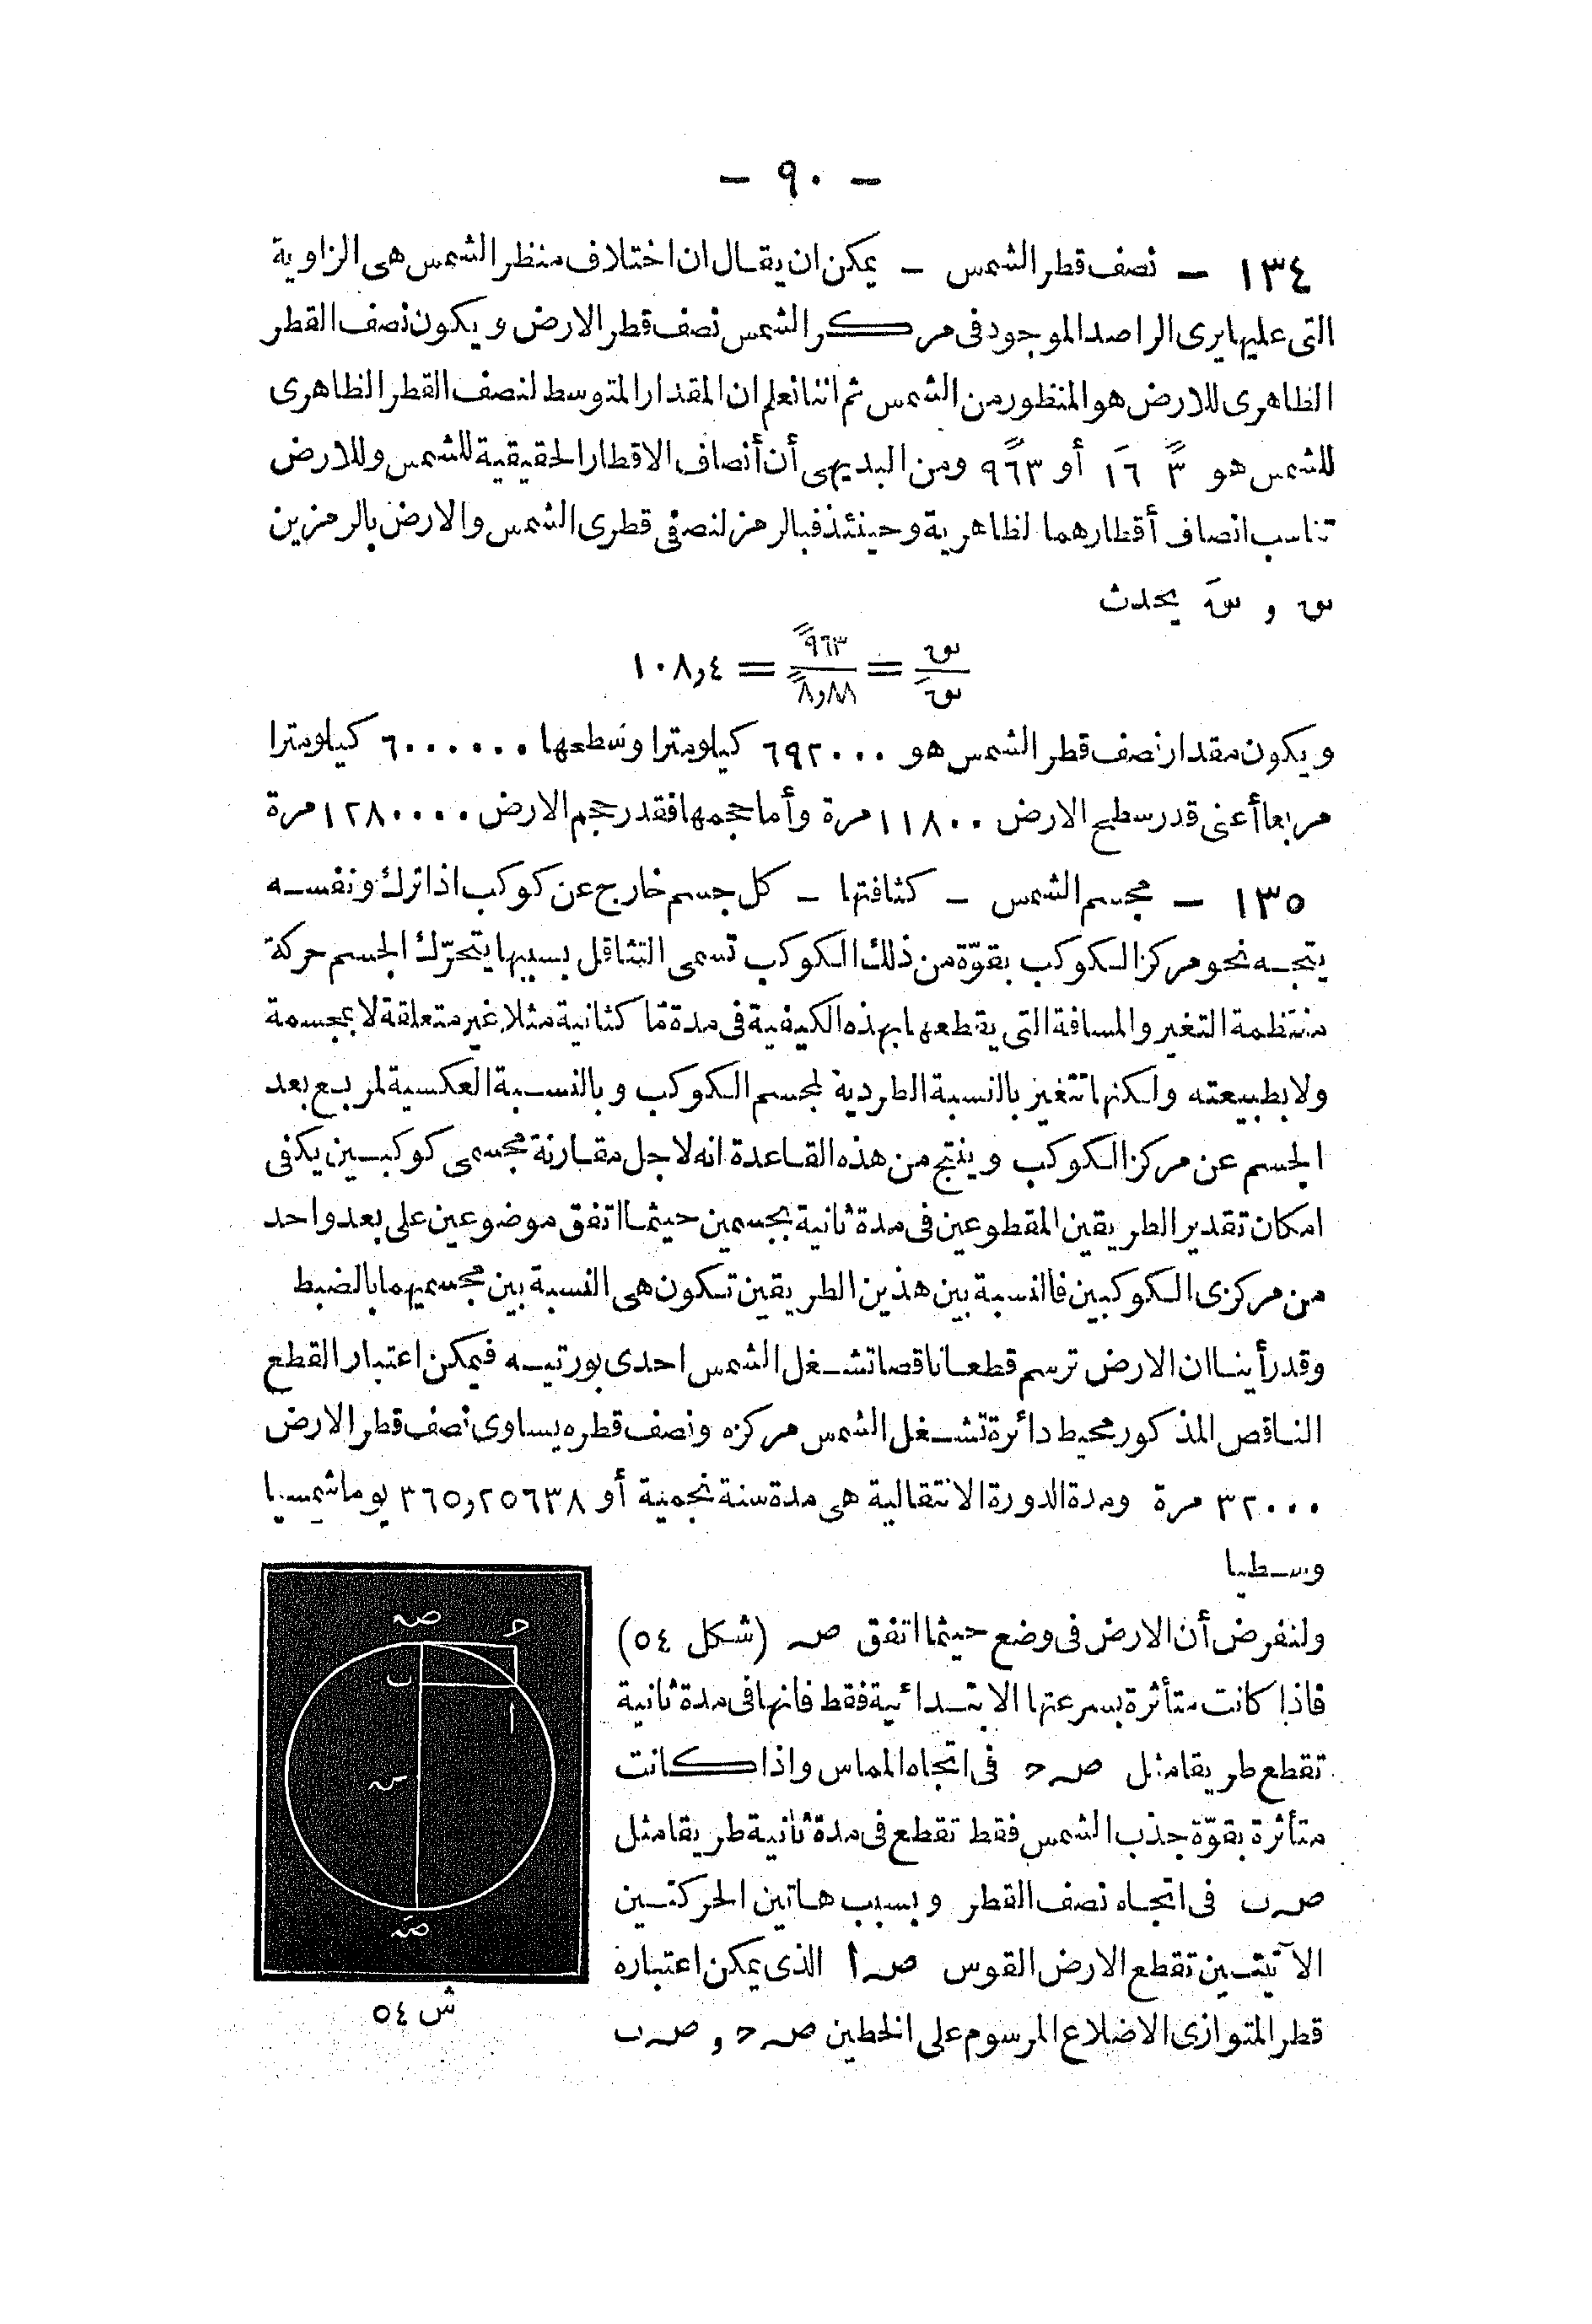 — ٩٠ —
١٣٤ — نصف قطر الشمس — يمكن ان يقال ان اختلاف منظر الشمس هى الزاوية
التى عليها يرى الراصد الموجود فى مركز الشمس نصف قطر الارض ويكون نصف القطر
الظاهرى للارض هو المنظور من الشمس ثم اننا نعلم ان المقدار المتوسط لنصف القطر الظاهرى
للشمس هو ً٣ َ١٦ أو ً٩٦٣ ومن البديهى أن أنصاف الاقطار الحقيقية للشمس وللارض
تناسب انصاف أقطارهما لظاهرية وحينئذ فبالرمز لنصفى قطرى الشمس والارض بالرمزين
س و سَ يحدث
س/سَ = ً٩٦٣/ً٨,٨٨ = ١٠٨,٤
ويكون مقدار نصف قطر الشمس هو ٦٩٢٠٠٠ كيلومترا وسطحها ٦٠٠٠٠٠٠ كيلومترا
مربعا أعنى قدر سطح الارض ١١٨٠٠ مرة وأما حجمها فقدر حجم الارض ١٢٨٠٠٠٠ مرة
١٣٥ — مجسم الشمس — كثافتها — كل جسم خارج عن كوكب اذا ترك ونفسه
يتجه نحو مركز الكوكب بقوّة من ذلك الكوكب تسمى التثاقل بسببها يتحرّك الجسم حركة
منتظمة التغير والمسافة التى يقطعها بهذه الكيفية فى مدة مّا كثانية مثلا غير متعلقة لا بمجسمة
ولا بطبيعته ولكنها تتغير بالنسبة الطردية لمجسم الكوكب وبالنسبة العكسية لمربع بعد
الجسم عن مركز الكوكب وينتج من هذه القاعدة انه لاجل مقارنة مجسمى كوكبين يكفى
امكان تقدير الطريقين المقطوعين فى مدة ثانية بجسمين حيثما اتفق موضوعين على بعد واحد
من مركزى الكوكبين فالنسبة بين هذين الطريقين تكون هى النسبة بين مجسميهما بالضبط
وقد رأينا ان الارض ترسم قطعا ناقصا تشغل الشمس احدى بورتيه فيمكن اعتبار القطع
الناقص المذكور محيط دائرة تشغل الشمس مركزه ونصف قطره يساوى نصف قطر الارض
٣٢٠٠٠ مرة ومدة الدورة الانتقالية هى مدة سنة نجمية أو ٣٦٥,٢٥٦٣٨ يوما شمسيا
وسطيا
ولنفرض أن الارض فى وضع حيثما اتفق صہ (شكل ٥٤)
فاذا كانت متأثرة بسرعتها الابتدائية فقط فانها فى مدة ثانية
تقطع طريقا مثل صہ حـ فى اتجاه المماس واذا كانت
متأثرة بقوّة جذب الشمس فقط تقطع فى مدة ثانية طريقا مثل
صہ ب فى اتجاه نصف القطر وبسبب هاتين الحركتين
الآتيتين تقطع الارض القوس صہ أ الذى يمكن اعتباره
قطر المتوازى الاضلاع المرسوم على الخطين صہ حـ و صہ ب
صہ
حـ
ب
ا
سہ
صَہ
ش ٥٤